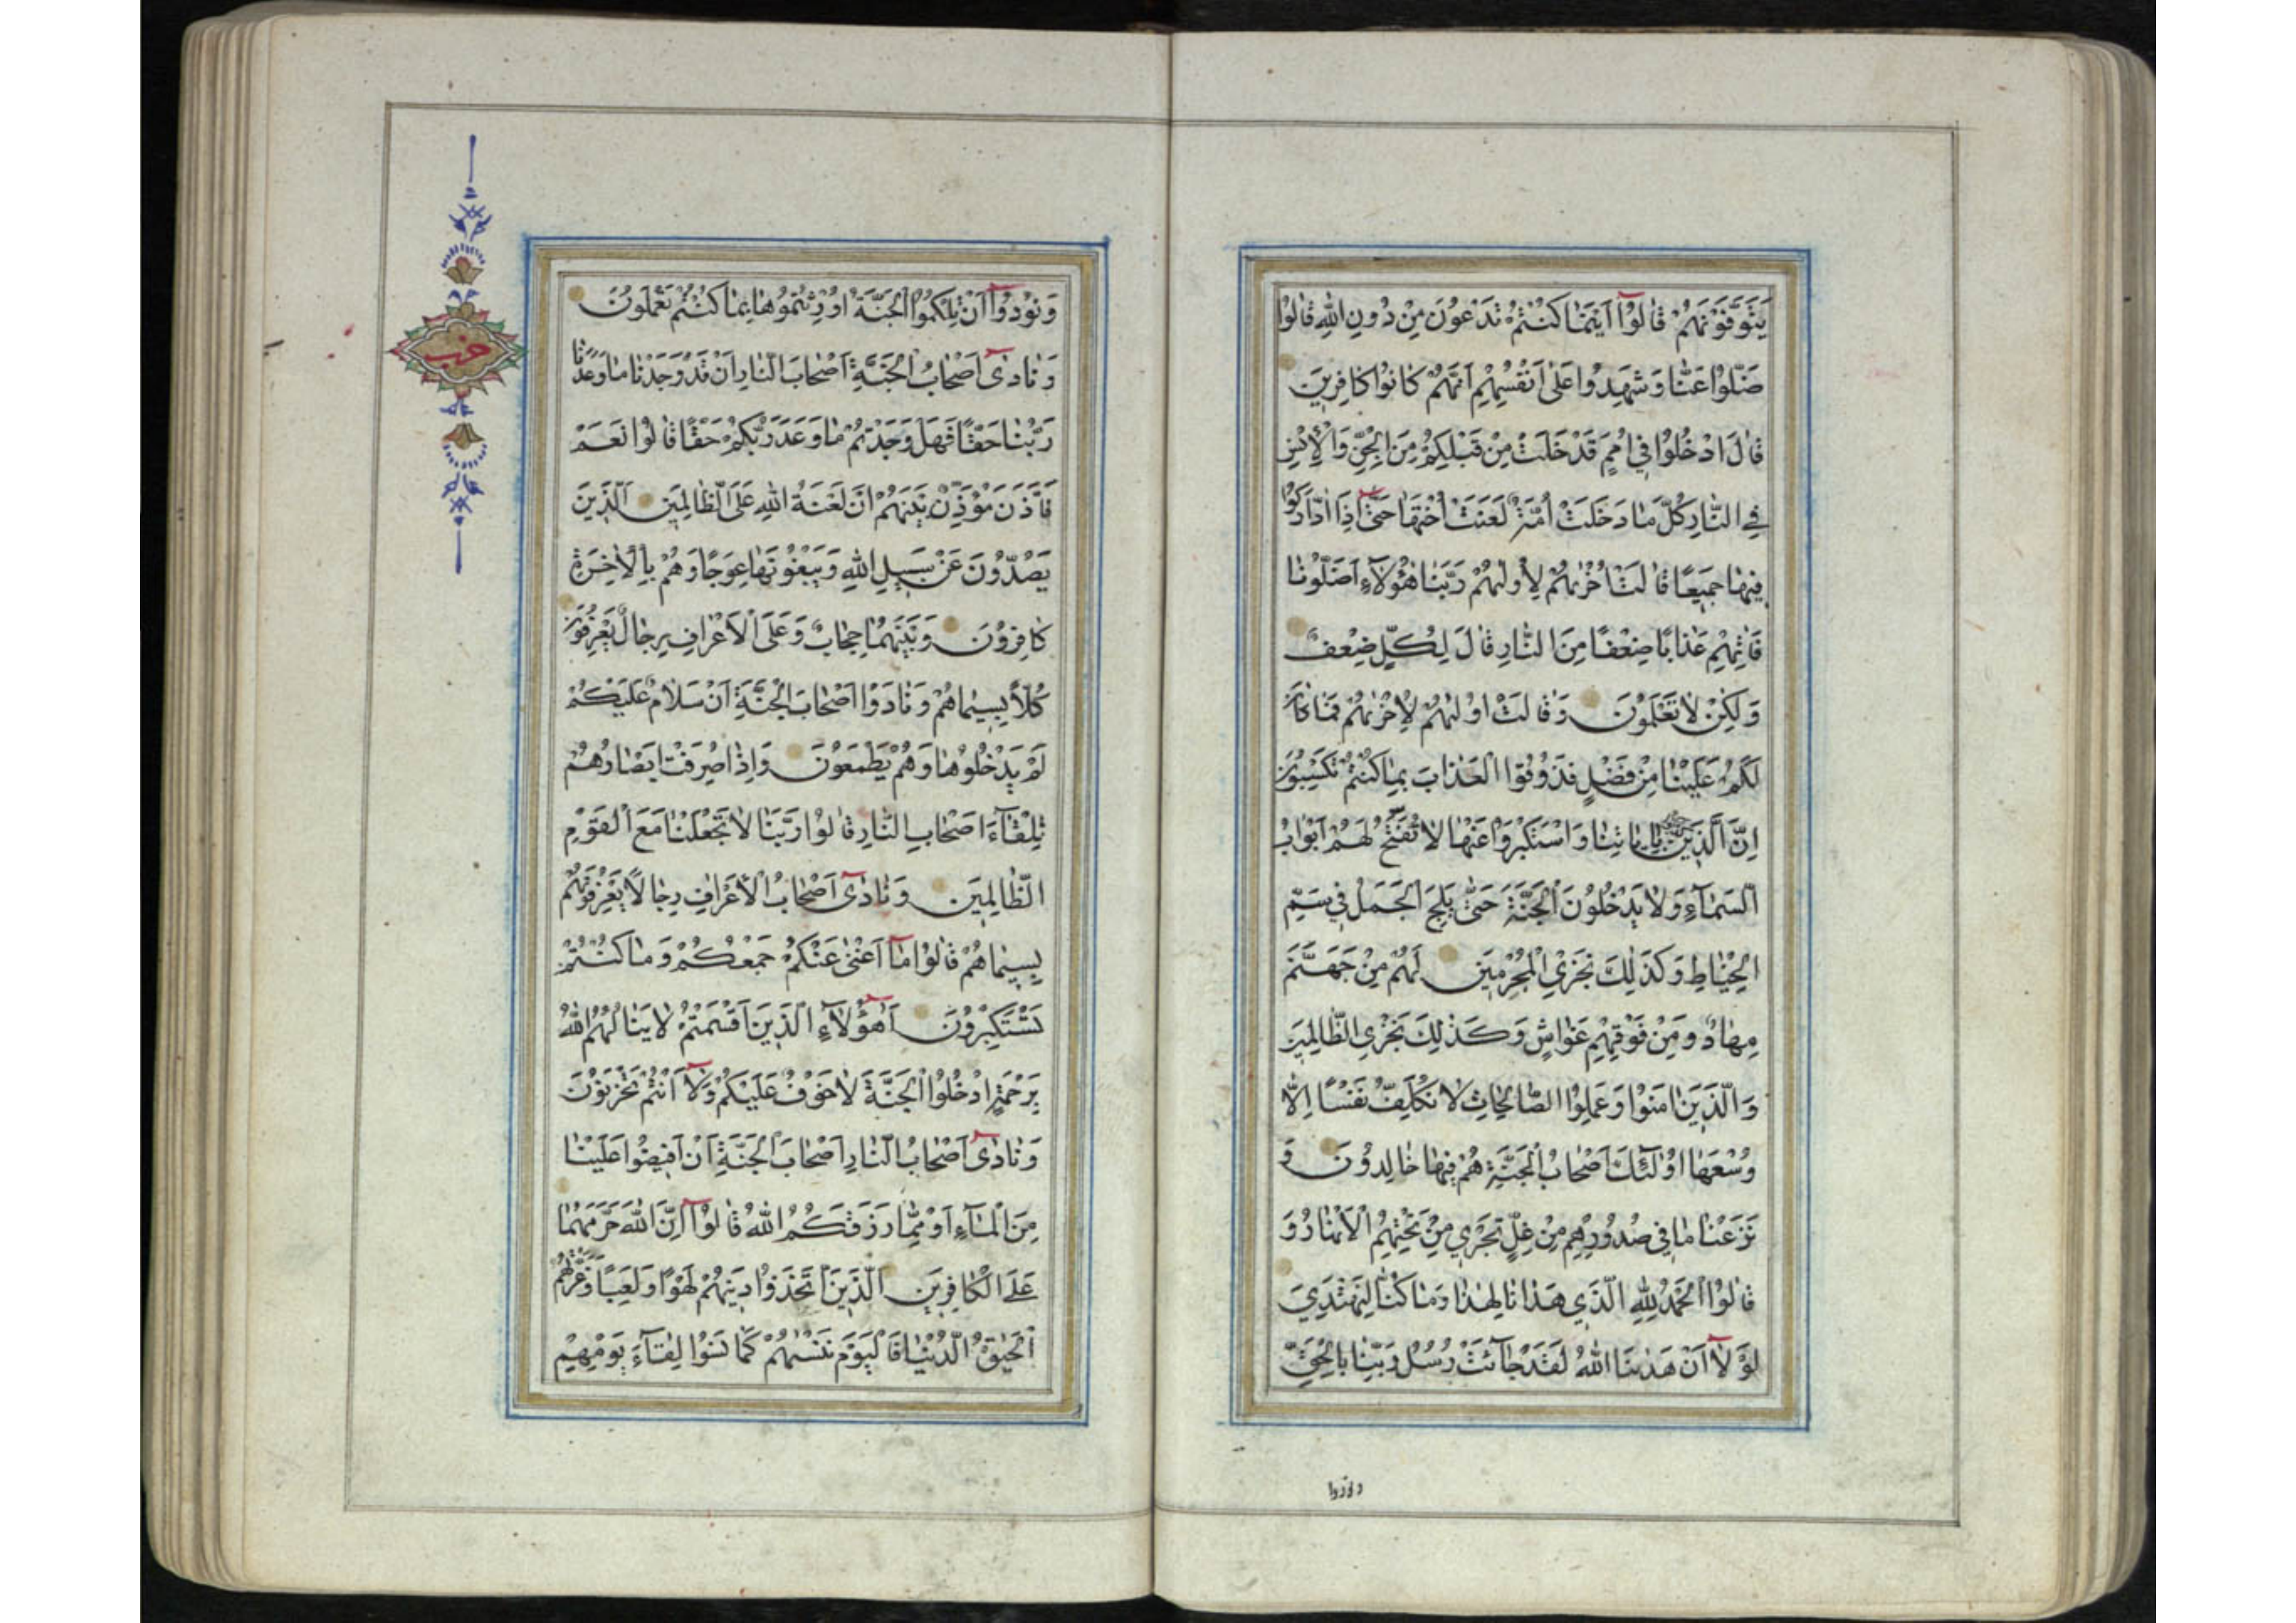 يَتَوَفَّوْنَهُمْ قٰالُوۤا اَيْنَمٰا كُنْتُمْ تَدْعُونَ مِنْ دُونِ اللّٰهِ قٰالُوا
ضَلُّوا عَنّٰا وَشَهِدُوا عَلٰى اَنْفُسِهِمْ اَنَّهُمْ كٰانُوا كٰافِرِينَ
قٰالَ ادْخُلُوا فِي اُمَمٍ قَدْ خَلَتْ مِنْ قَبْلِكُمْ مِنَ الْجِنِّ وَالْاِنْسِ
فِي النّٰارِ كُلَّمٰا دَخَلَتْ اُمَّةٌ لَعَنَتْ اُخْتَهٰا حَتّٰىۤ اِذَا ادّٰارَكُوا
فِيهٰا جَمِيعًا قٰالَتْ اُخْرٰىهُمْ لِاُولٰىهُمْ رَبَّنٰا هٰؤُلَآءِ اَضَلُّونٰا
فَاٰتِهِمْ عَذٰابًا ضِعْفًا مِنَ النّٰارِ قٰالَ لِكُلٍّ ضِعْفٌ
وَلٰكِنْ لٰا تَعْلَمُونَ وَقٰالَتْ اُولٰىهُمْ لِاُخْرٰىهُمْ فَمٰا كٰانَ
لَكُمْ عَلَيْنٰا مِنْ فَضْلٍ فَذُوقُوا الْعَذٰابَ بِمٰا كُنْتُمْ تَكْسِبُونَ
اِنَّ الَّذِينَ كذبوا بِاٰيٰاتِنٰا وَاسْتَكْبَرُوا عَنْهٰا لٰا تُفَتَّحُ لَهُمْ اَبْوٰابُ
السَّمٰآءِ وَلٰا يَدْخُلُونَ الْجَنَّةَ حَتّٰى يَلِجَ الْجَمَلُ فِي سَمِّ
الْخِيٰاطِ وَكَذٰلِكَ نَجْزِي الْمُجْرِمِينَ لَهُمْ مِنْ جَهَنَّمَ
مِهٰادٌ وَمِنْ فَوْقِهِمْ غَوٰاشٍ وَكَذٰلِكَ نَجْزِي الظّٰالِمِينَ
وَالَّذِينَ اٰمَنُوا وَعَمِلُوا الصّٰالِحٰاتِ لٰا نُكَلِّفُ نَفْسًا اِلّٰا
وُسْعَهٰا اُولٰئِكَ اَصْحٰابُ الْجَنَّةِ هُمْ فِيهٰا خٰالِدُونَ وَ
نَزَعْنٰا مٰا فِي صُدُورِهِمْ مِنْ غِلٍّ تَجْرِي مِنْ تَحْتِهِمُ الْاَنْهٰارُ وَ
قٰالُوا الْحَمْدُ لِلّٰهِ الَّذِي هَدٰانٰا لِهٰذٰا وَمٰا كُنّٰا لِنَهْتَدِيَ
لَوْلٰاۤ اَنْ هَدٰىنَا اللّٰهُ لَقَدْ جٰآئَتْ رُسُلُ رَبِّنٰا بِالْحَقِّ
ونودوا
وَنُودُوۤا اَنْ تِلْكُمُوا الْجَنَّةُ اُورِثْتُمُوهٰا بِمٰا كُنْتُمْ تَعْمَلُونَ
وَنٰادٰىۤ اَصْحٰابُ الْجَنَّةِ اَصْحٰابَ النّٰارِ اَنْ قَدْ وَجَدْنٰا مٰا وَعَدَنٰا
رَبُّنٰا حَقًّا فَهَلْ وَجَدْتُمْ مٰا وَعَدَ رَبُّكُمْ حَقًّا قٰالُوا نَعَمْ
فَاَذَّنَ مُؤَذِّنٌ بَيْنَهُمْ اَنْ لَعْنَةُ اللّٰهِ عَلَى الظّٰالِمِينَ الَّذِينَ
يَصُدُّونَ عَنْ سَبِيلِ اللّٰهِ وَيَبْغُونَهٰا عِوَجًا وَهُمْ بِالْاٰخِرَةِ
كٰافِرُونَ وَبَيْنَهُمٰا حِجٰابٌ وَعَلَى الْاَعْرٰافِ رِجٰالٌ يَعْرِفُونَ
كُلًّا بِسِيمٰاهُمْ وَنٰادَوْا اَصْحٰابَ الْجَنَّةِ اَنْ سَلٰامٌ عَلَيْكُمْ
لَمْ يَدْخُلُوهٰا وَهُمْ يَطْمَعُونَ وَاِذٰا صُرِفَتْ اَبْصٰارُهُمْ
تِلْقٰآءَ اَصْحٰابِ النّٰارِ قٰالُوا رَبَّنٰا لٰا تَجْعَلْنٰا مَعَ الْقَوْمِ
الظّٰالِمِينَ وَنٰادٰىۤ اَصْحٰابُ الْاَعْرٰافِ رِجٰالًا يَعْرِفُونَهُمْ
بِسِيمٰاهُمْ قٰالُوا مٰاۤ اَغْنٰى عَنْكُمْ جَمْعُكُمْ وَمٰا كُنْتُمْ
تَسْتَكْبِرُونَ اَهٰۤؤُلَآءِ الَّذِينَ اَقْسَمْتُمْ لٰا يَنٰالُهُمُ اللّٰهُ
بِرَحْمَةٍ ادْخُلُوا الْجَنَّةَ لٰا خَوْفٌ عَلَيْكُمْ وَلٰاۤ اَنْتُمْ تَحْزَنُونَ
وَنٰادٰىۤ اَصْحٰابُ النّٰارِ اَصْحٰابَ الْجَنَّةِ اَنْ اَفِيضُوا عَلَيْنٰا
مِنَ الْمٰآءِ اَوْ مِمّٰا رَزَقَكُمُ اللّٰهُ قٰالُوۤا اِنَّ اللّٰهَ حَرَّمَهُمٰا
عَلَى الْكٰافِرِينَ الَّذِينَ اتَّخَذُوا دِينَهُمْ لَهْوًا وَلَعِبًا وَغَرَّتْهُمُ
الْحَيٰوةُ الدُّنْيٰا فَالْيَوْمَ نَنْسٰىهُمْ كَمٰا نَسُوا لِقٰآءَ يَوْمِهِمْ
حزب